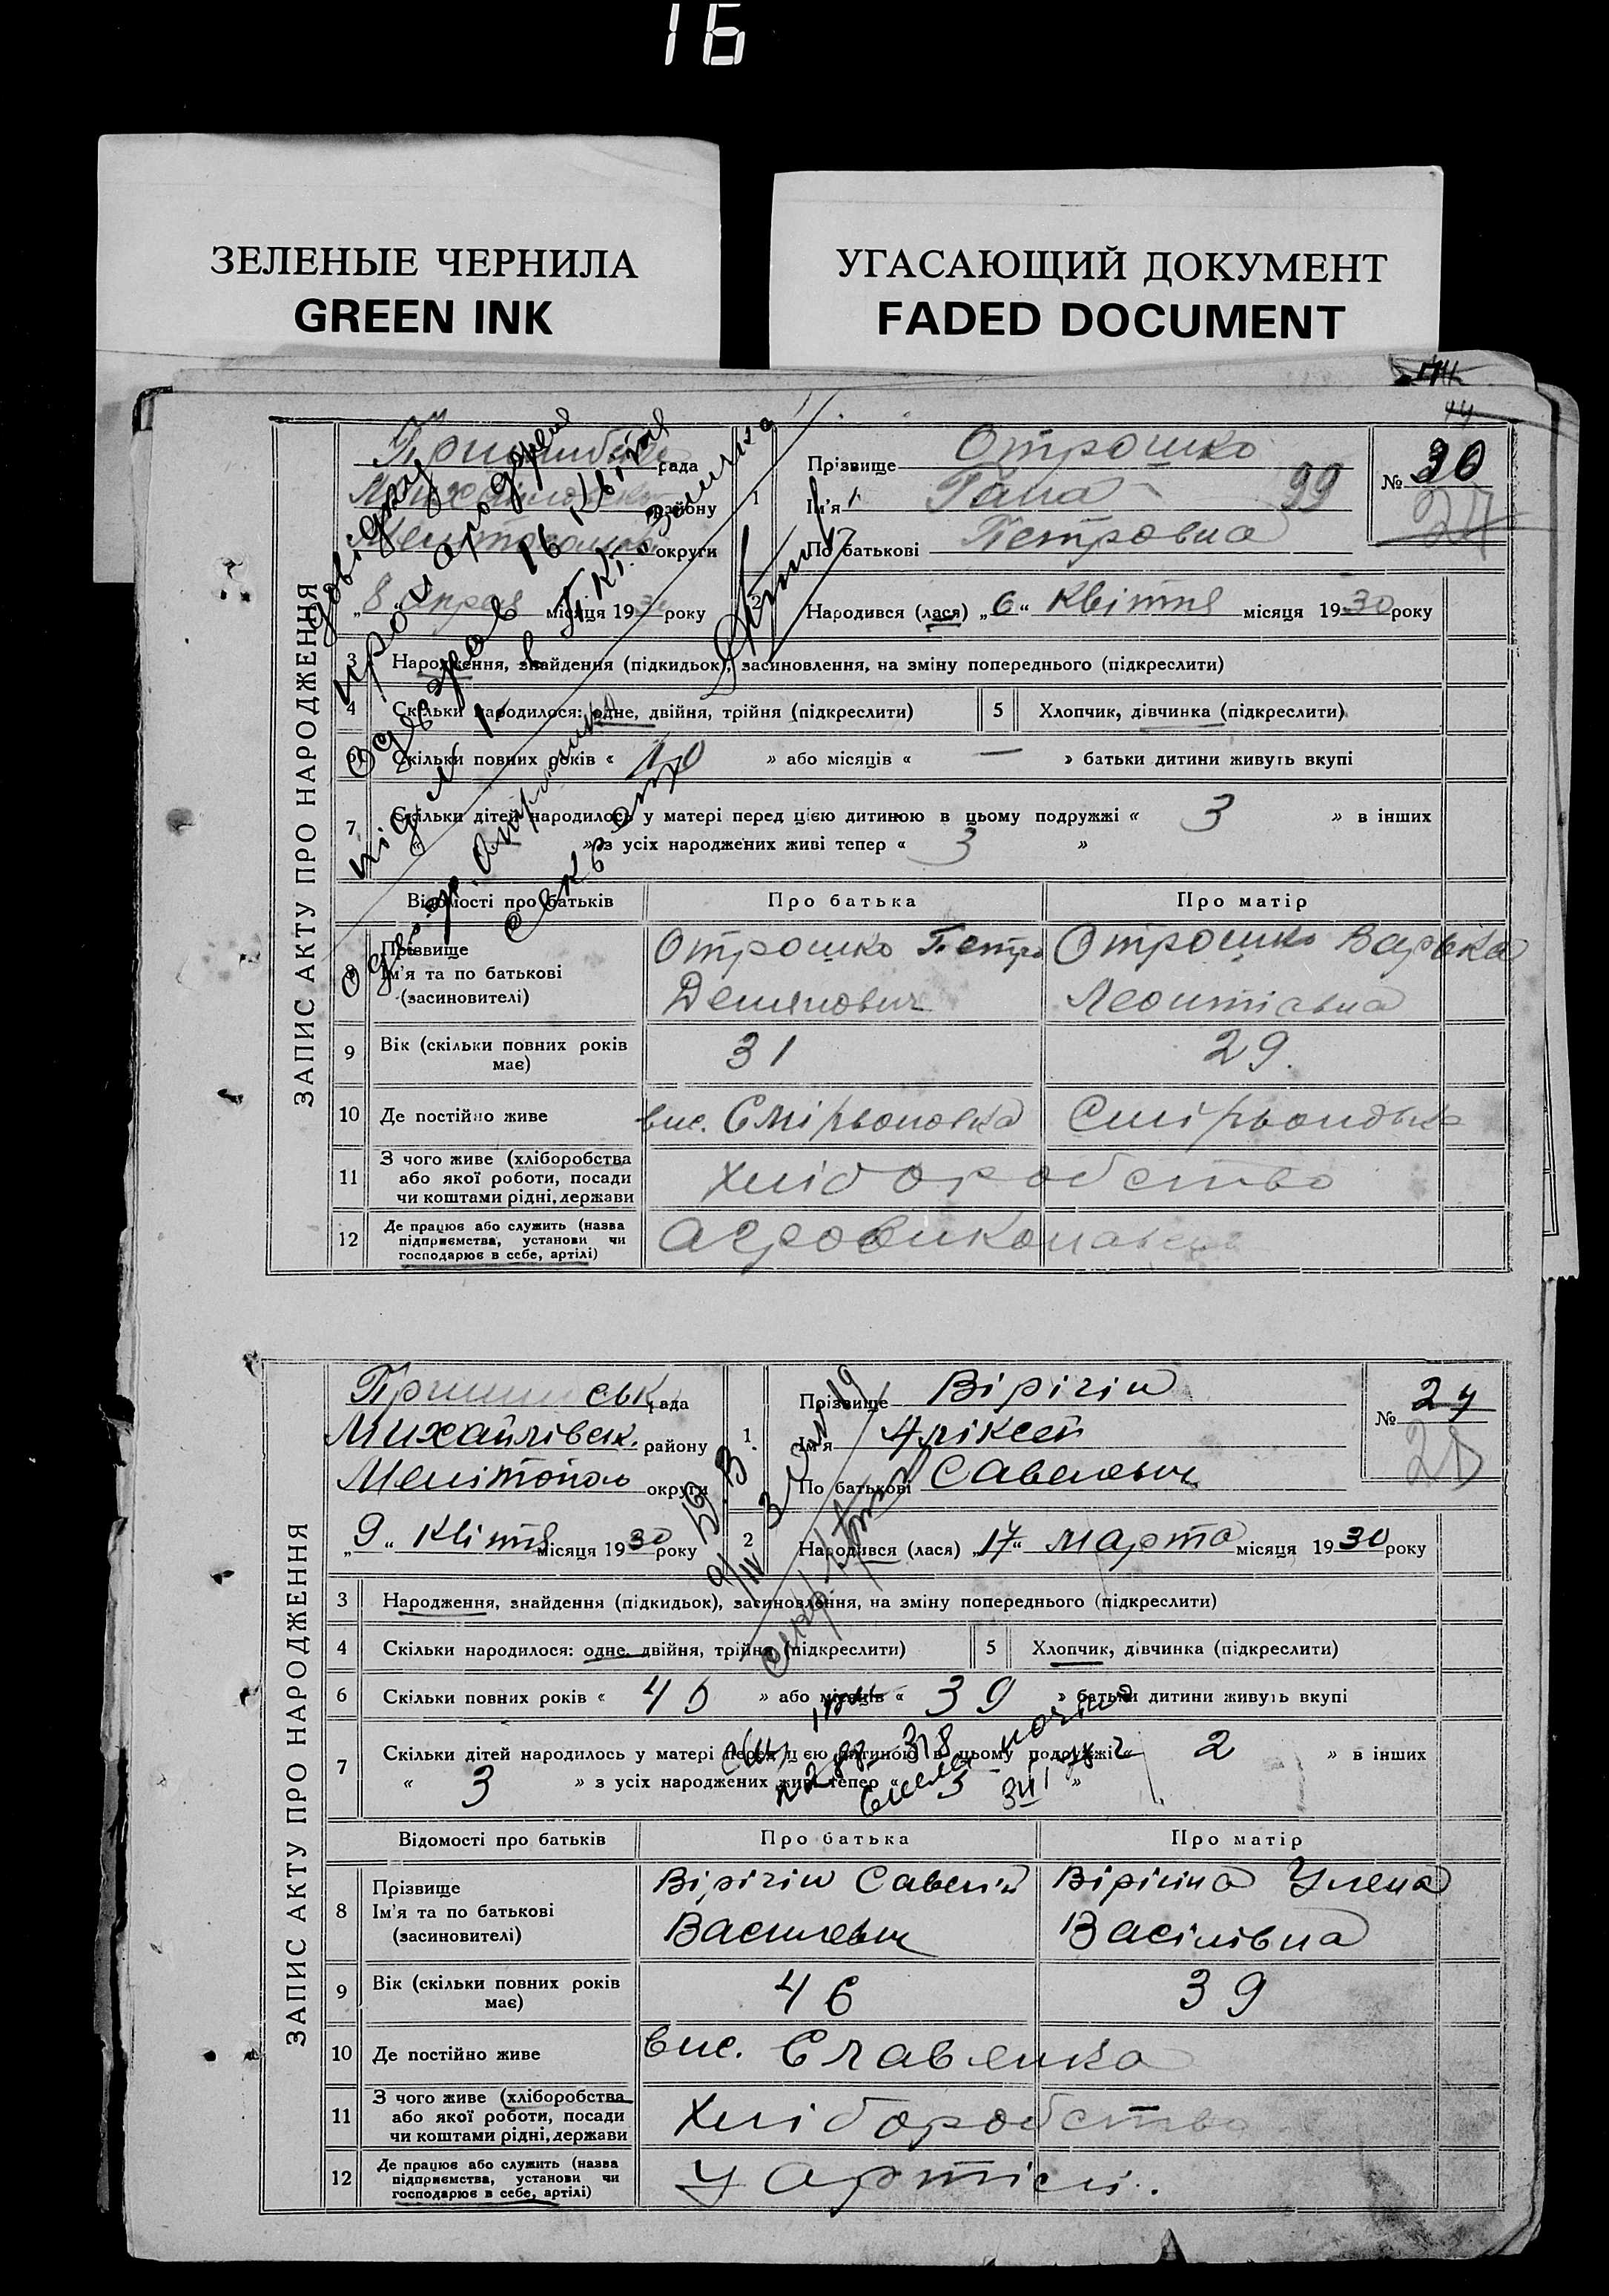 16
ЗЕЛЕНЫЕ ЧЕРНИЛА
GREEN INK
УГАСАЮЩИЙ ДОКУМЕНТ
FADED DOCUMENT
44
ЗАПИС АКТУ ПРО НАРОДЖЕННЯ
рада
району
округи
„8“ Апреля місяця 1930 року
1
Прізвище Отрошко
Ім'я Гана 99
По батькові Петровна
№ 30
27
2
Народився (лася) „6“ Квітня місяця 1930 року
довідку
про народження
одержав 16 Квітня
3 Народження, знайдення (підкидьок), засиновлення, на зміну попереднього (підкреслити)
4 Скільки народилося: одне, двійня, трійня (підкреслити)
5 Хлопчик, дівчинка (підкреслити)
6 Скільки повних років « 10 » або місяців « — » батьки дитини живуть вкупі
7 Скільки дітей народилось у матері перед цією дитиною в цьому подружжі « 3 » в інших
« » з усіх народжених живі тепер « 3 »
Відомості про батьків
Про батька
Про матір
8 Прізвище
Ім'я та по батькові
(засиновителі)
Отрошко Петро
Демянович
Отрошко Варька
Леонтіавна
9 Вік (скільки повних років
має)
31
29.
10 Де постійно живе
вис. Смірьоновка
11 З чого живе (хліборобства
або якої роботи, посади
чи коштами рідні, держави
Хліборобство
12 Де працює або служить (назва
підприємства, установи чи
господарює в себе, артілі)
ЗАПИС АКТУ ПРО НАРОДЖЕННЯ
рада
Михайлівськ. району
Мелітополь округи
„9“ Квітня місяця 1930 року
1
Прізвище Вірігін
Ім'я Аліксей
По батькові Савелевич
№ 27
28
2
Народився (лася) „17“ марта місяця 1930 року
3 Народження, знайдення (підкидьок), засиновлення, на зміну попереднього (підкреслити)
4 Скільки народилося: одне, двійня, трійня (підкреслити)
5 Хлопчик, дівчинка (підкреслити)
6 Скільки повних років « » або місяців « 39 » батьки дитини живуть вкупі
7 Скільки дітей народилось у матері перед цією дитиною в цьому подружжі « 2 » в інших
« 3 » з усіх народжених живі тепер « 5 »
Відомості про батьків
Про батька
Про матір
8 Прізвище
Ім'я та по батькові
(засиновителі)
Вірігін Савелій
Василевич
Вірігіна Улена
Васілівна
9 Вік (скільки повних років
має)
46
39
10 Де постійно живе
вис. Славянка
11 З чого живе (хліборобства
або якої роботи, посади
чи коштами рідні, держави
Хліборобство
12 Де працює або служить (назва
підприємства, установи чи
господарює в себе, артілі)
У артілі.